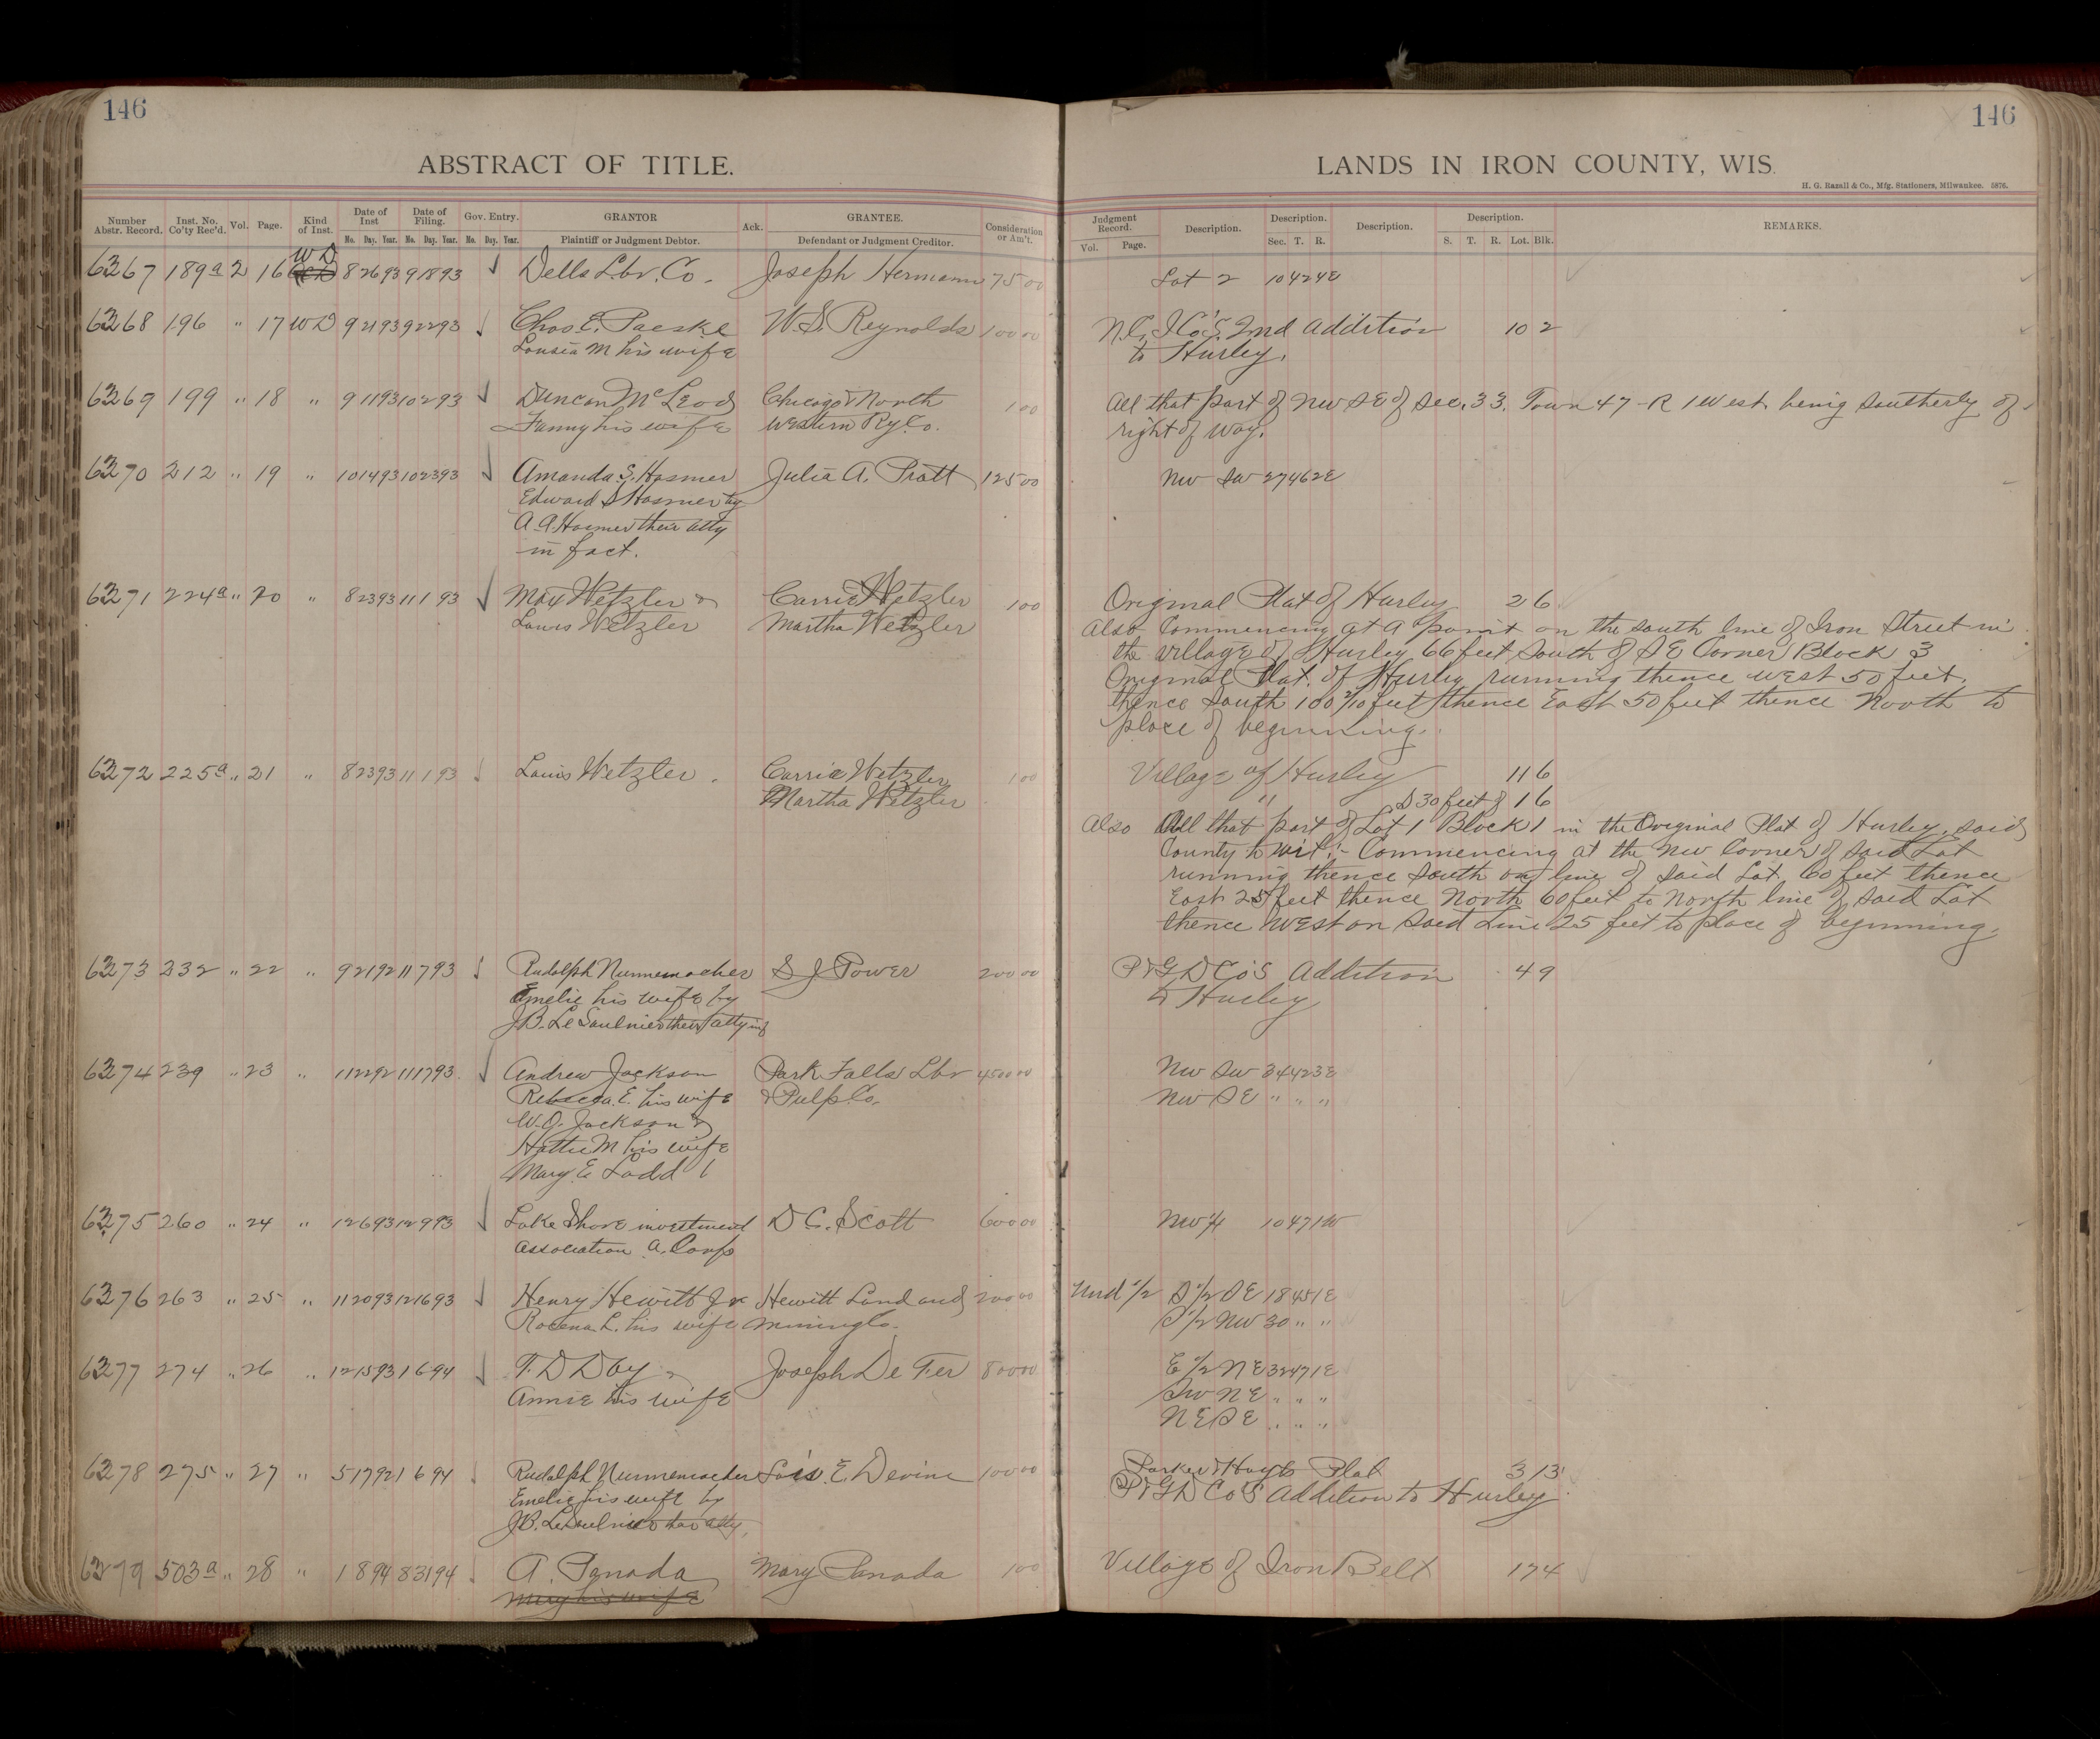 146
146
ABSTRACT OF TITLE.
LANDS IN IRON COUNTY, WIS.
H. G. Razall & Co., Mfg. Stationers, Milwaukee. 5876.
Number Abstr. Record. Inst. No. Co'ty Rec'd. Vol. Page. Kind of Inst. Date of Inst Mo. Day. Year. Date of Filing. Mo. Day. Year. Gov. Entry. Mo. Day. Year. GRANTOR Plaintiff or Judgment Debtor. Ack. GRANTEE. Defendant or Judgment Creditor. Consideration or Am't.
Judgment Record. Vol. Page. Description. Description. Sec. T. R. Description. Description. S. T. R. Lot. Blk. REMARKS.
WD
6267 189a 2 16 8 26 93 9 18 93 Dells Lbr. Co. Joseph Hermann 75 00 Lot 2 10 42 4E
6268 196 " 17 WD 9 21 93 9 22 93 Chas E. Paeske W. S. Reynolds 100 00 N.C. I Co's 2nd Addition 10 2
Lousia M his wife to Hurley.
6269 199 " 18 " 9 11 93 10 2 93 Duncan McLeod Chicago & North 1 00 All that part of NW SE of Sec. 33. Town 47 - R 1 West being southerly of
Fanny his wife Western Ry Co. right of way.
6270 212 " 19 " 10 14 93 10 23 93 Amanda S. Hosmer Julia A. Pratt 125 00 NW SW 27 46 2E
Edward S Hosmer by
A. A. Hosmer their atty
in fact.
6271 224a " 20 " 8 23 93 11 1 93 Max Wetzler & Carrie Wetzler 1 00 Original Plat of Hurley 2 6
Louis Wetzler Martha Wetzler Also Commencing at a point on the south line of Iron Street in
the village of Hurley 66 feet south of SE Corner Block 3
Original Plat of Hurley running thence west 50 feet,
thence South 100 2/10 feet thence East 50 feet thence North to
place of beginning.
6272 225a " 21 " 8 23 93 11 1 93 Louis Wetzler. Carrie Wetzler 1 00 Village of Hurley 11 6
Martha Wetzler " S 30 feet of 1 6
Also All that part of Lot 1 Block 1 in the Original Plat of Hurley, said
County to wit:- Commencing at the NW Corner of said Lot
running thence South on line of said Lot 60 feet thence
East 25 feet thence North 60 feet to North line of said Lot
thence West on said Line 25 feet to place of beginning.
6273 232 " 22 " 9 21 92 11 7 93 Rudolph Nunnemacher S J Power 200 00 P & G D Co's Addition 4 9
Emelie his wife by to Hurley
J.B. Le Saulnier their atty in f
6274 239 " 23 " 11 22 92 11 17 93 Andrew Jackson Park Falls Lbr 4500 00 NW SW 34 42 3E
Rebecca E. his wife & Pulp Co. NW SE " " "
W. O. Jackson &
Hattie M his wife
Mary E Ladd
6275 260 " 24 " 12 6 93 12 9 93 Lake Shore investment D C. Scott 600 00 NW 1/4 10 47 1W
association a Corp
6276 263 " 25 " 11 20 93 12 16 93 Henry Hewitt Jr Hewitt Land and 200 00 Und 1/2 S 1/2 SE 18 45 1E
Rocena L. his wife mining Co. S 1/2 NW 30 " "
6277 274 " 26 " 12 15 93 1 6 94 F. D Day & Joseph De Fer 800 00 E 1/2 NE 32 47 1E
Annie his wife SW NE " " "
NE SE " " "
6278 275 " 27 " 5 17 92 1 6 94 Rudolph Nunnemacher Lois. E. Devine 100 00 Parker & Hoyts Plat 3 13
Emelie his wife by P & G D Co's Addition to Hurley
J.B. Le Saulnier
6279 503a " 28 " 1 8 94 8 31 94 A. Panada Mary Panada 1 00 Village of Iron Belt 17 4
Mary his wife